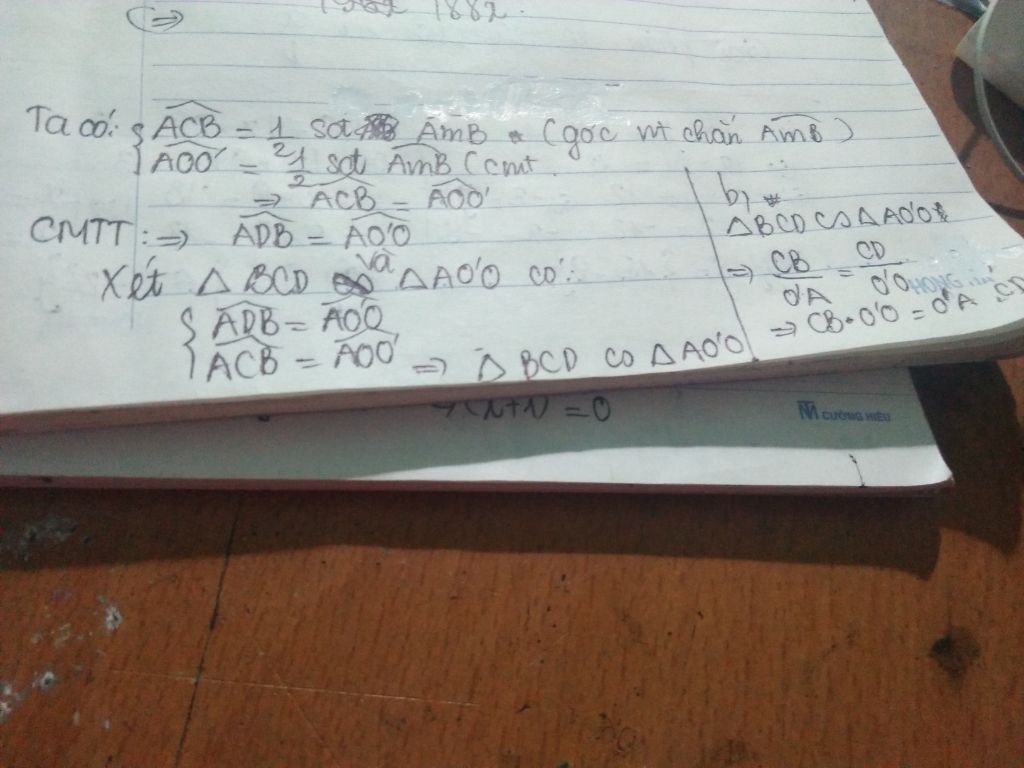 ⇒ 1882.
Ta có: { ACB = 1/2 sđt AmB (góc nt chắn AmB)
AOO' = 1/2 sđt AmB (cmt.
⇒ ACB = AOO'
CMTT: ⇒ ADB = AO'O
Xét △ BCD và △ AO'O có:
{ ADB = AO'O
ACB = AOO' ⇒ △ BCD ᔕ △ AO'O
b,
△BCD ᔕ △AO'O
⇒ CB/O'A = CD/O'O
⇒ CB.O'O = O'A.CD
= 0
CƯỜNG HIẾU